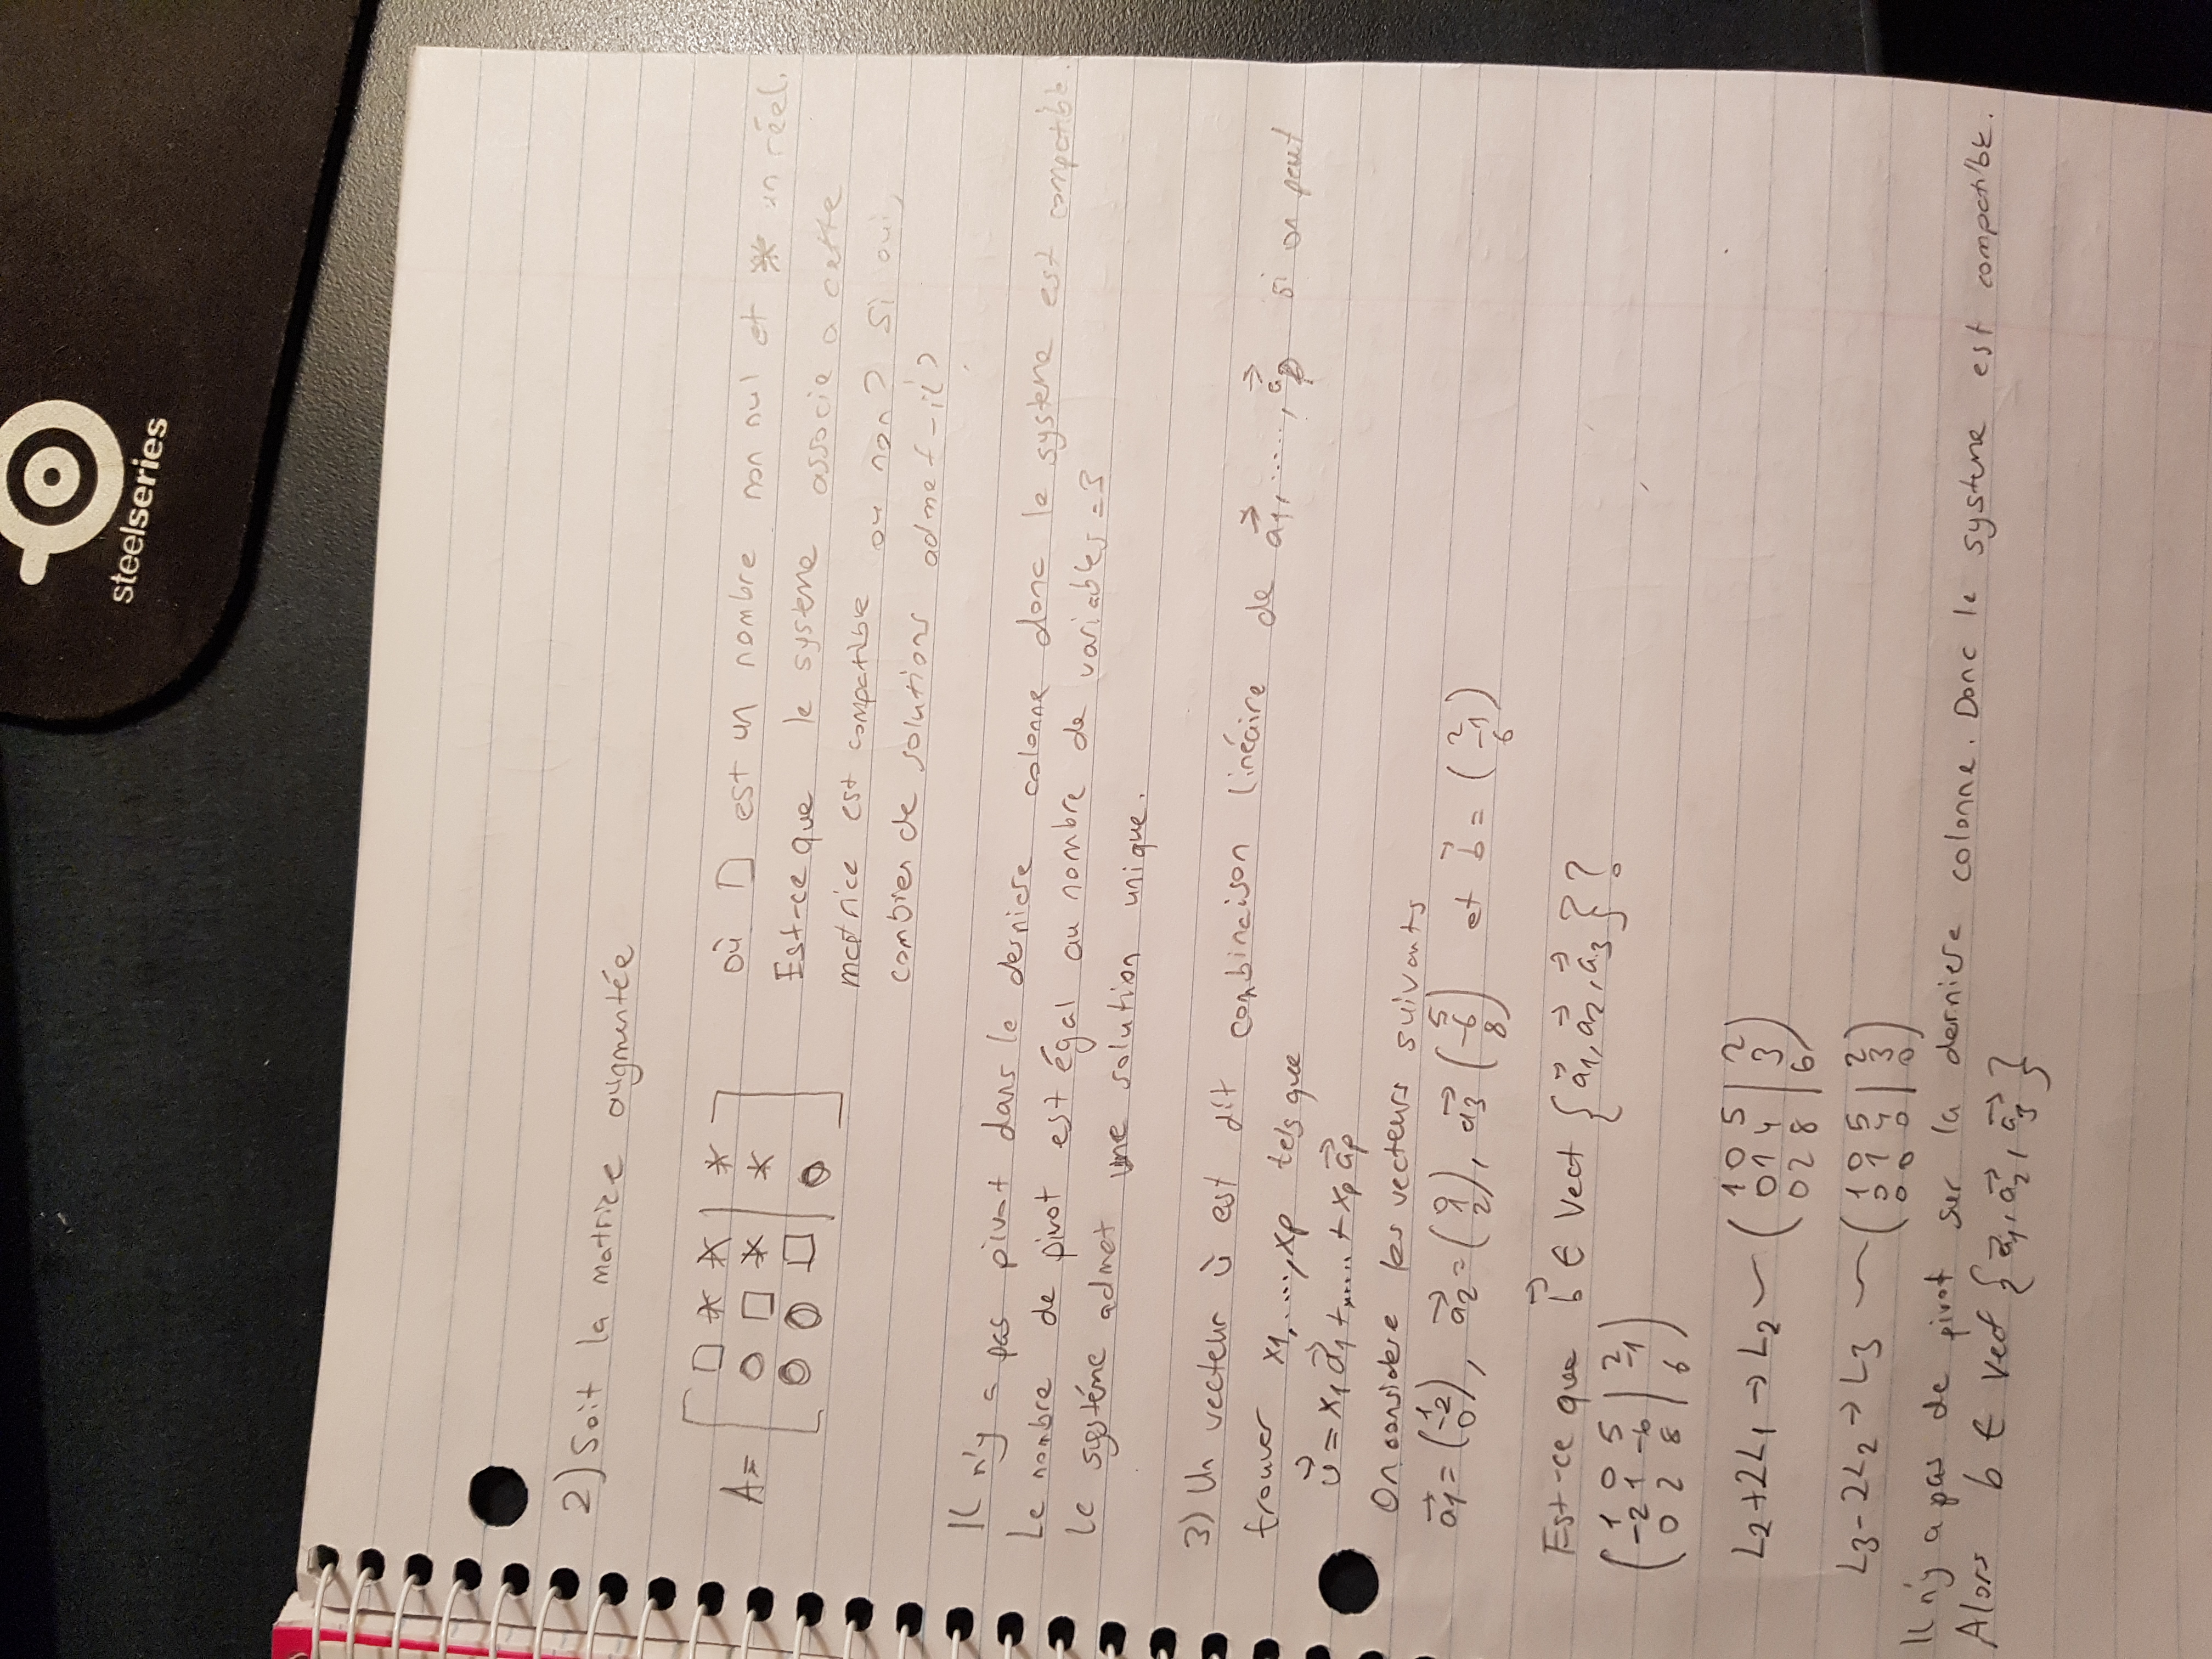 steelseries
2) Soit la matrice augmentée
A = [ □ * * | * ] où □ est un nombre non nul et * un réel.
[ 0 □ * | * ] Est-ce que le systeme associe a cette
[ 0 0 □ | 0 ] matrice est compatible ou non? Si oui,
combien de solutions admet-il?
Il n'y a pas pivot dans le derniere colonne donc le systeme est compatible.
Le nombre de pivot est égal au nombre de variables = 3
Le systéme admet une solution unique.
3) Un vecteur u⃗ est dit combinaison linéaire de a⃗1, ......, a⃗p si on peut
trouver x1, ...., xp tels que
u⃗ = x1a⃗1 + ..... + xpa⃗p
On considere les vecteurs suivants
a⃗1 = (1 -2 0), a⃗2 = (0 1 2), a⃗3 (5 -6 8) et b⃗ = (2 -1 6)
Est-ce que b⃗ ∈ Vect {a⃗1, a⃗2, a⃗3}?
( 1 0 5 | 2 )
( -2 1 -6 | -1 )
( 0 2 8 | 6 )
L2+2L1 → L2 ~ ( 1 0 5 | 2 )
( 0 1 4 | 3 )
( 0 2 8 | 6 )
L3-2L2 → L3 ~ ( 1 0 5 | 2 )
( 0 1 4 | 3 )
( 0 0 0 | 0 )
Il n'y a pas de pivot sur la derniere colonne. Donc le systeme est compatible.
Alors b ∈ Vect {a⃗1, a⃗2, a⃗3}